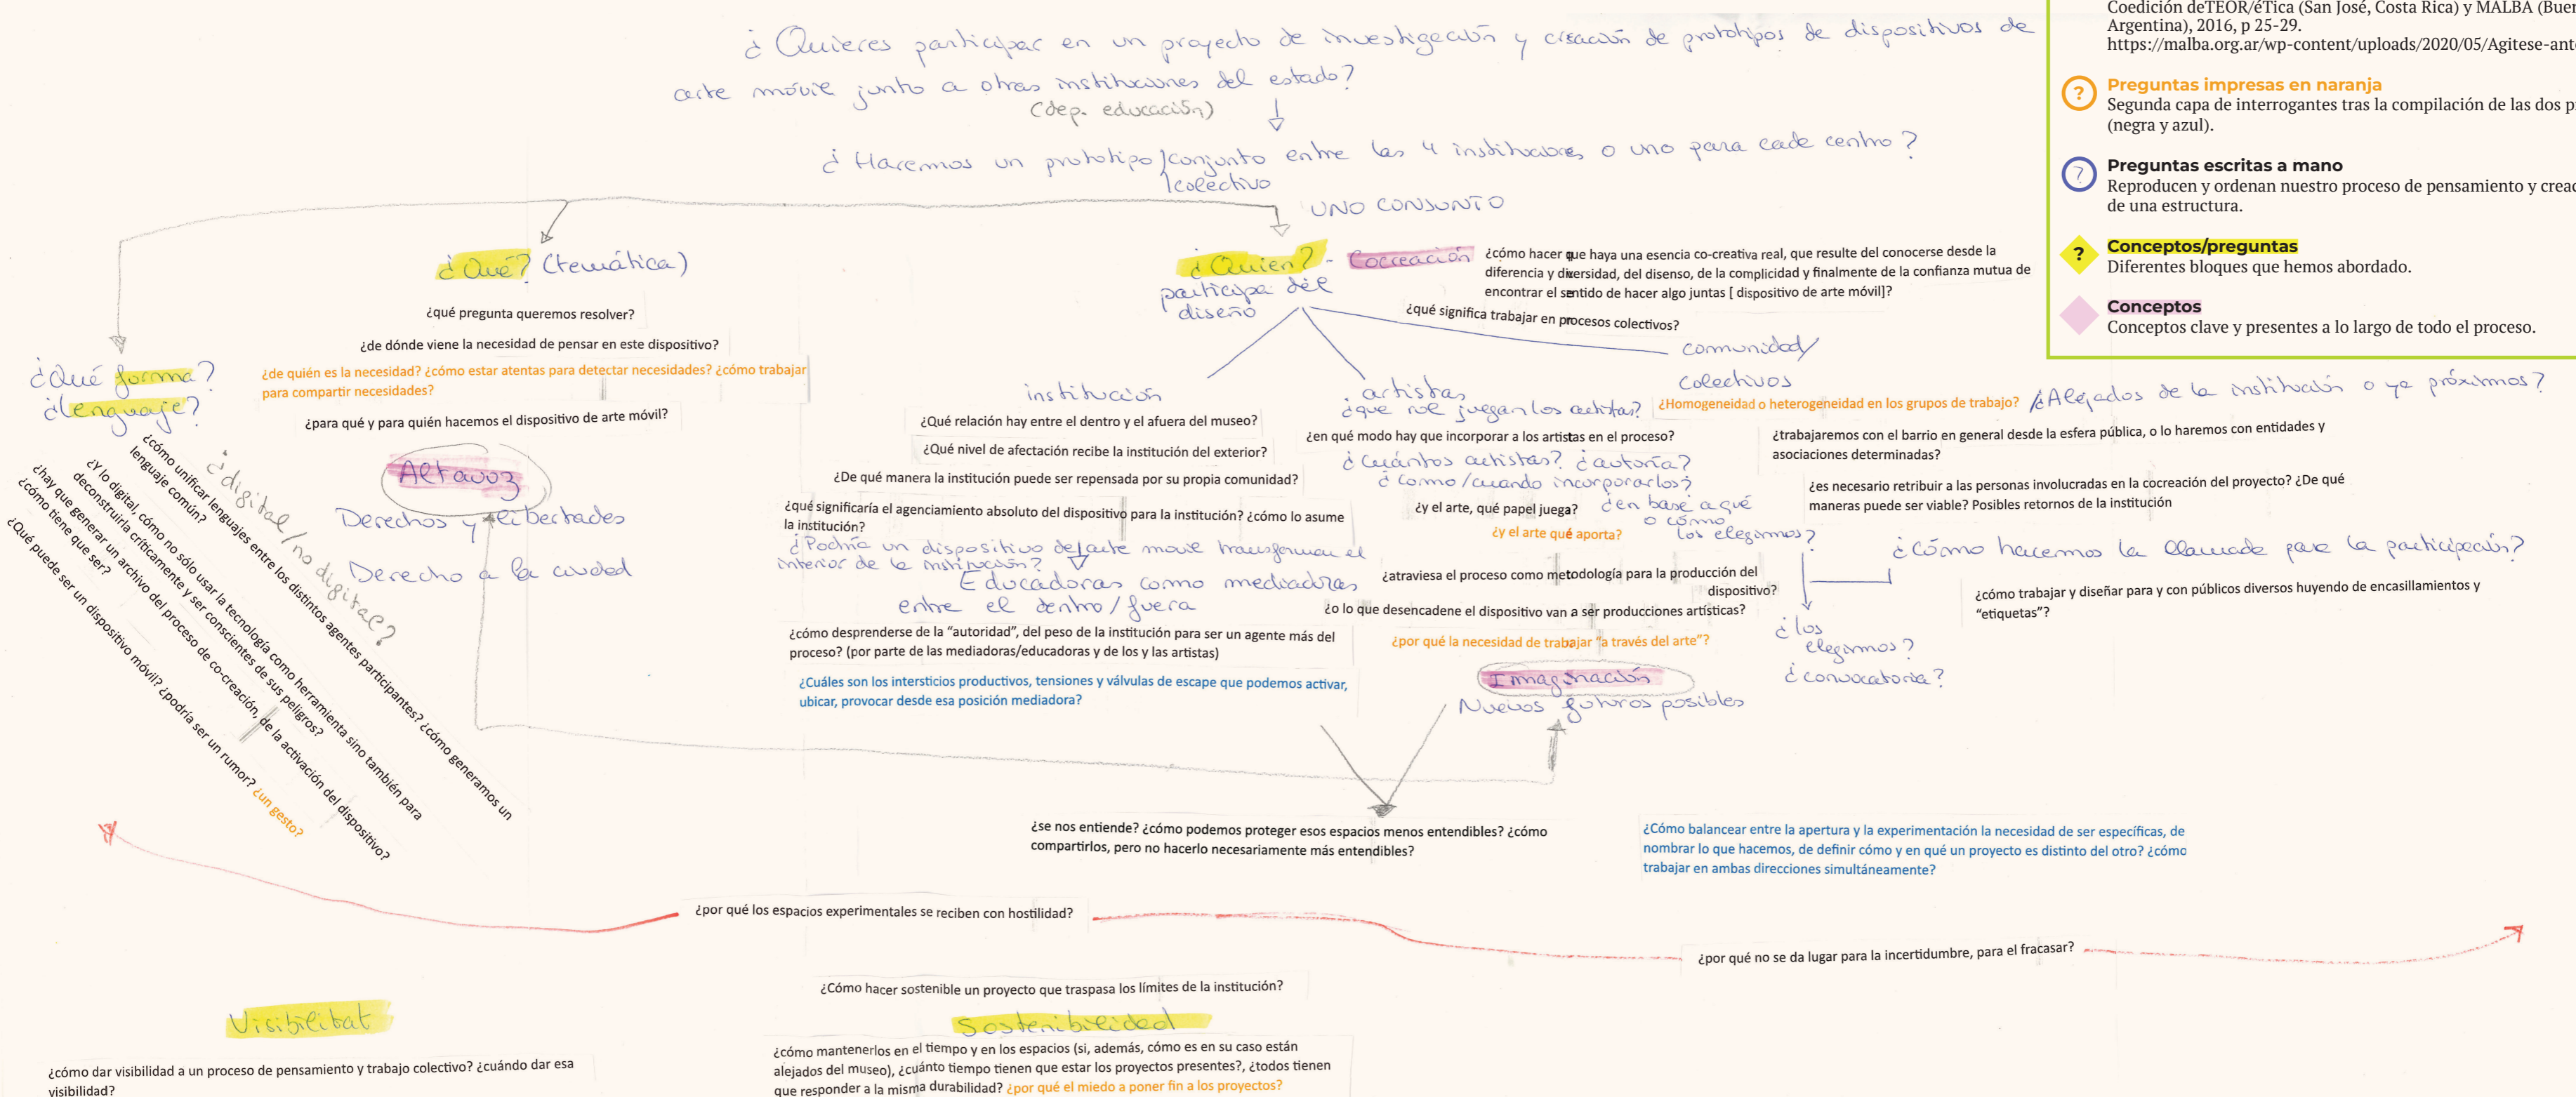 ¿Quieres participar en un proyecto de investigación y creación de prototipos de dispositivos de
arte móvil junto a otras instituciones del estado?
(dep. educación)
¿Haremos un prototipo conjunto entre las 4 instituciones o uno para cada centro?
/colectivo
UNO CONJUNTO
Coedición deTEOR/éTica (San José, Costa Rica) y MALBA
Argentina), 2016, p 25-29.
https://malba.org.ar/wp-content/uploads/2020/05/Agitese-ant
? Preguntas impresas en naranja
Segunda capa de interrogantes tras la compilación de las dos
(negra y azul).
? Preguntas escritas a mano
Reproducen y ordenan nuestro proceso de pensamiento y
de una estructura.
? Conceptos/preguntas
Diferentes bloques que hemos abordado.
Conceptos
Conceptos clave y presentes a lo largo de todo el proceso.
¿Qué? (temática)
¿qué pregunta queremos resolver?
¿de dónde viene la necesidad de pensar en este dispositivo?
¿de quién es la necesidad? ¿cómo estar atentas para detectar necesidades? ¿cómo trabajar
para compartir necesidades?
¿para qué y para quién hacemos el dispositivo de arte móvil?
Altavoz
Derechos y libertades
Derecho a la ciudad
¿Qué forma?
¿lenguaje?
¿digital/no digital?
¿cómo unificar lenguajes entre los distintos agentes participantes? ¿cómo generamos un
lenguaje común?
¿Y lo digital, cómo no sólo usar la tecnología como herramienta sino también para
deconstruirla críticamente y ser conscientes de sus peligros?
¿hay que generar un archivo del proceso de co-creación, de la activación del dispositivo?
¿cómo tiene que ser?
¿Qué puede ser un dispositivo móvil? ¿podría ser un rumor? ¿un gesto?
¿Quien? - Cocreación
participa del
diseño
¿cómo hacer que haya una esencia co-creativa real, que resulte del conocerse desde la
diferencia y diversidad, del disenso, de la complicidad y finalmente de la confianza mutua de
encontrar el sentido de hacer algo juntas [ dispositivo de arte móvil]?
¿qué significa trabajar en procesos colectivos?
institución
¿Qué relación hay entre el dentro y el afuera del museo?
¿Qué nivel de afectación recibe la institución del exterior?
¿De qué manera la institución puede ser repensada por su propia comunidad?
¿qué significaría el agenciamiento absoluto del dispositivo para la institución? ¿cómo lo asume
la institución?
¿Podría un dispositivo de arte movil transformar el
interior de la institución?
Educadoras como mediadoras
entre el dentro/fuera
¿cómo desprenderse de la “autoridad”, del peso de la institución para ser un agente más del
proceso? (por parte de las mediadoras/educadoras y de los y las artistas)
¿Cuáles son los intersticios productivos, tensiones y válvulas de escape que podemos activar,
ubicar, provocar desde esa posición mediadora?
artistas
¿que rol juegan los artistas?
¿en qué modo hay que incorporar a los artistas en el proceso?
¿Cuántos artistas? ¿autoría?
¿como/cuando incorporarlos?
¿y el arte, qué papel juega?
¿en base a qué
o cómo
los elegimos?
¿y el arte qué aporta?
¿atraviesa el proceso como metodología para la producción del
dispositivo?
¿o lo que desencadene el dispositivo van a ser producciones artísticas?
¿por qué la necesidad de trabajar “a través del arte”?
Imaginación
Nuevos futuros posibles
¿los
elegimos?
¿convocatoria?
comunidad/
colectivos
¿Homogeneidad o heterogeneidad en los grupos de trabajo?
¿Alejados de la institución o ya próximos?
¿trabajaremos con el barrio en general desde la esfera pública, o lo haremos con entidades y
asociaciones determinadas?
¿es necesario retribuir a las personas involucradas en la cocreación del proyecto? ¿De qué
maneras puede ser viable? Posibles retornos de la institución
¿cómo hacemos la llamada para la participación?
¿cómo trabajar y diseñar para y con públicos diversos huyendo de encasillamientos y
“etiquetas”?
¿se nos entiende? ¿cómo podemos proteger esos espacios menos entendibles? ¿cómo
compartirlos, pero no hacerlo necesariamente más entendibles?
¿Cómo balancear entre la apertura y la experimentación la necesidad de ser específicas, de
nombrar lo que hacemos, de definir cómo y en qué un proyecto es distinto del otro? ¿cómo
trabajar en ambas direcciones simultáneamente?
¿por qué los espacios experimentales se reciben con hostilidad?
¿por qué no se da lugar para la incertidumbre, para el fracasar?
¿Cómo hacer sostenible un proyecto que traspasa los límites de la institución?
Visibilitat
¿cómo dar visibilidad a un proceso de pensamiento y trabajo colectivo? ¿cuándo dar esa
visibilidad?
Sostenibilidad
¿cómo mantenerlos en el tiempo y en los espacios (si, además, cómo es en su caso están
alejados del museo), ¿cuánto tiempo tienen que estar los proyectos presentes?, ¿todos tienen
que responder a la misma durabilidad? ¿por qué el miedo a poner fin a los proyectos?